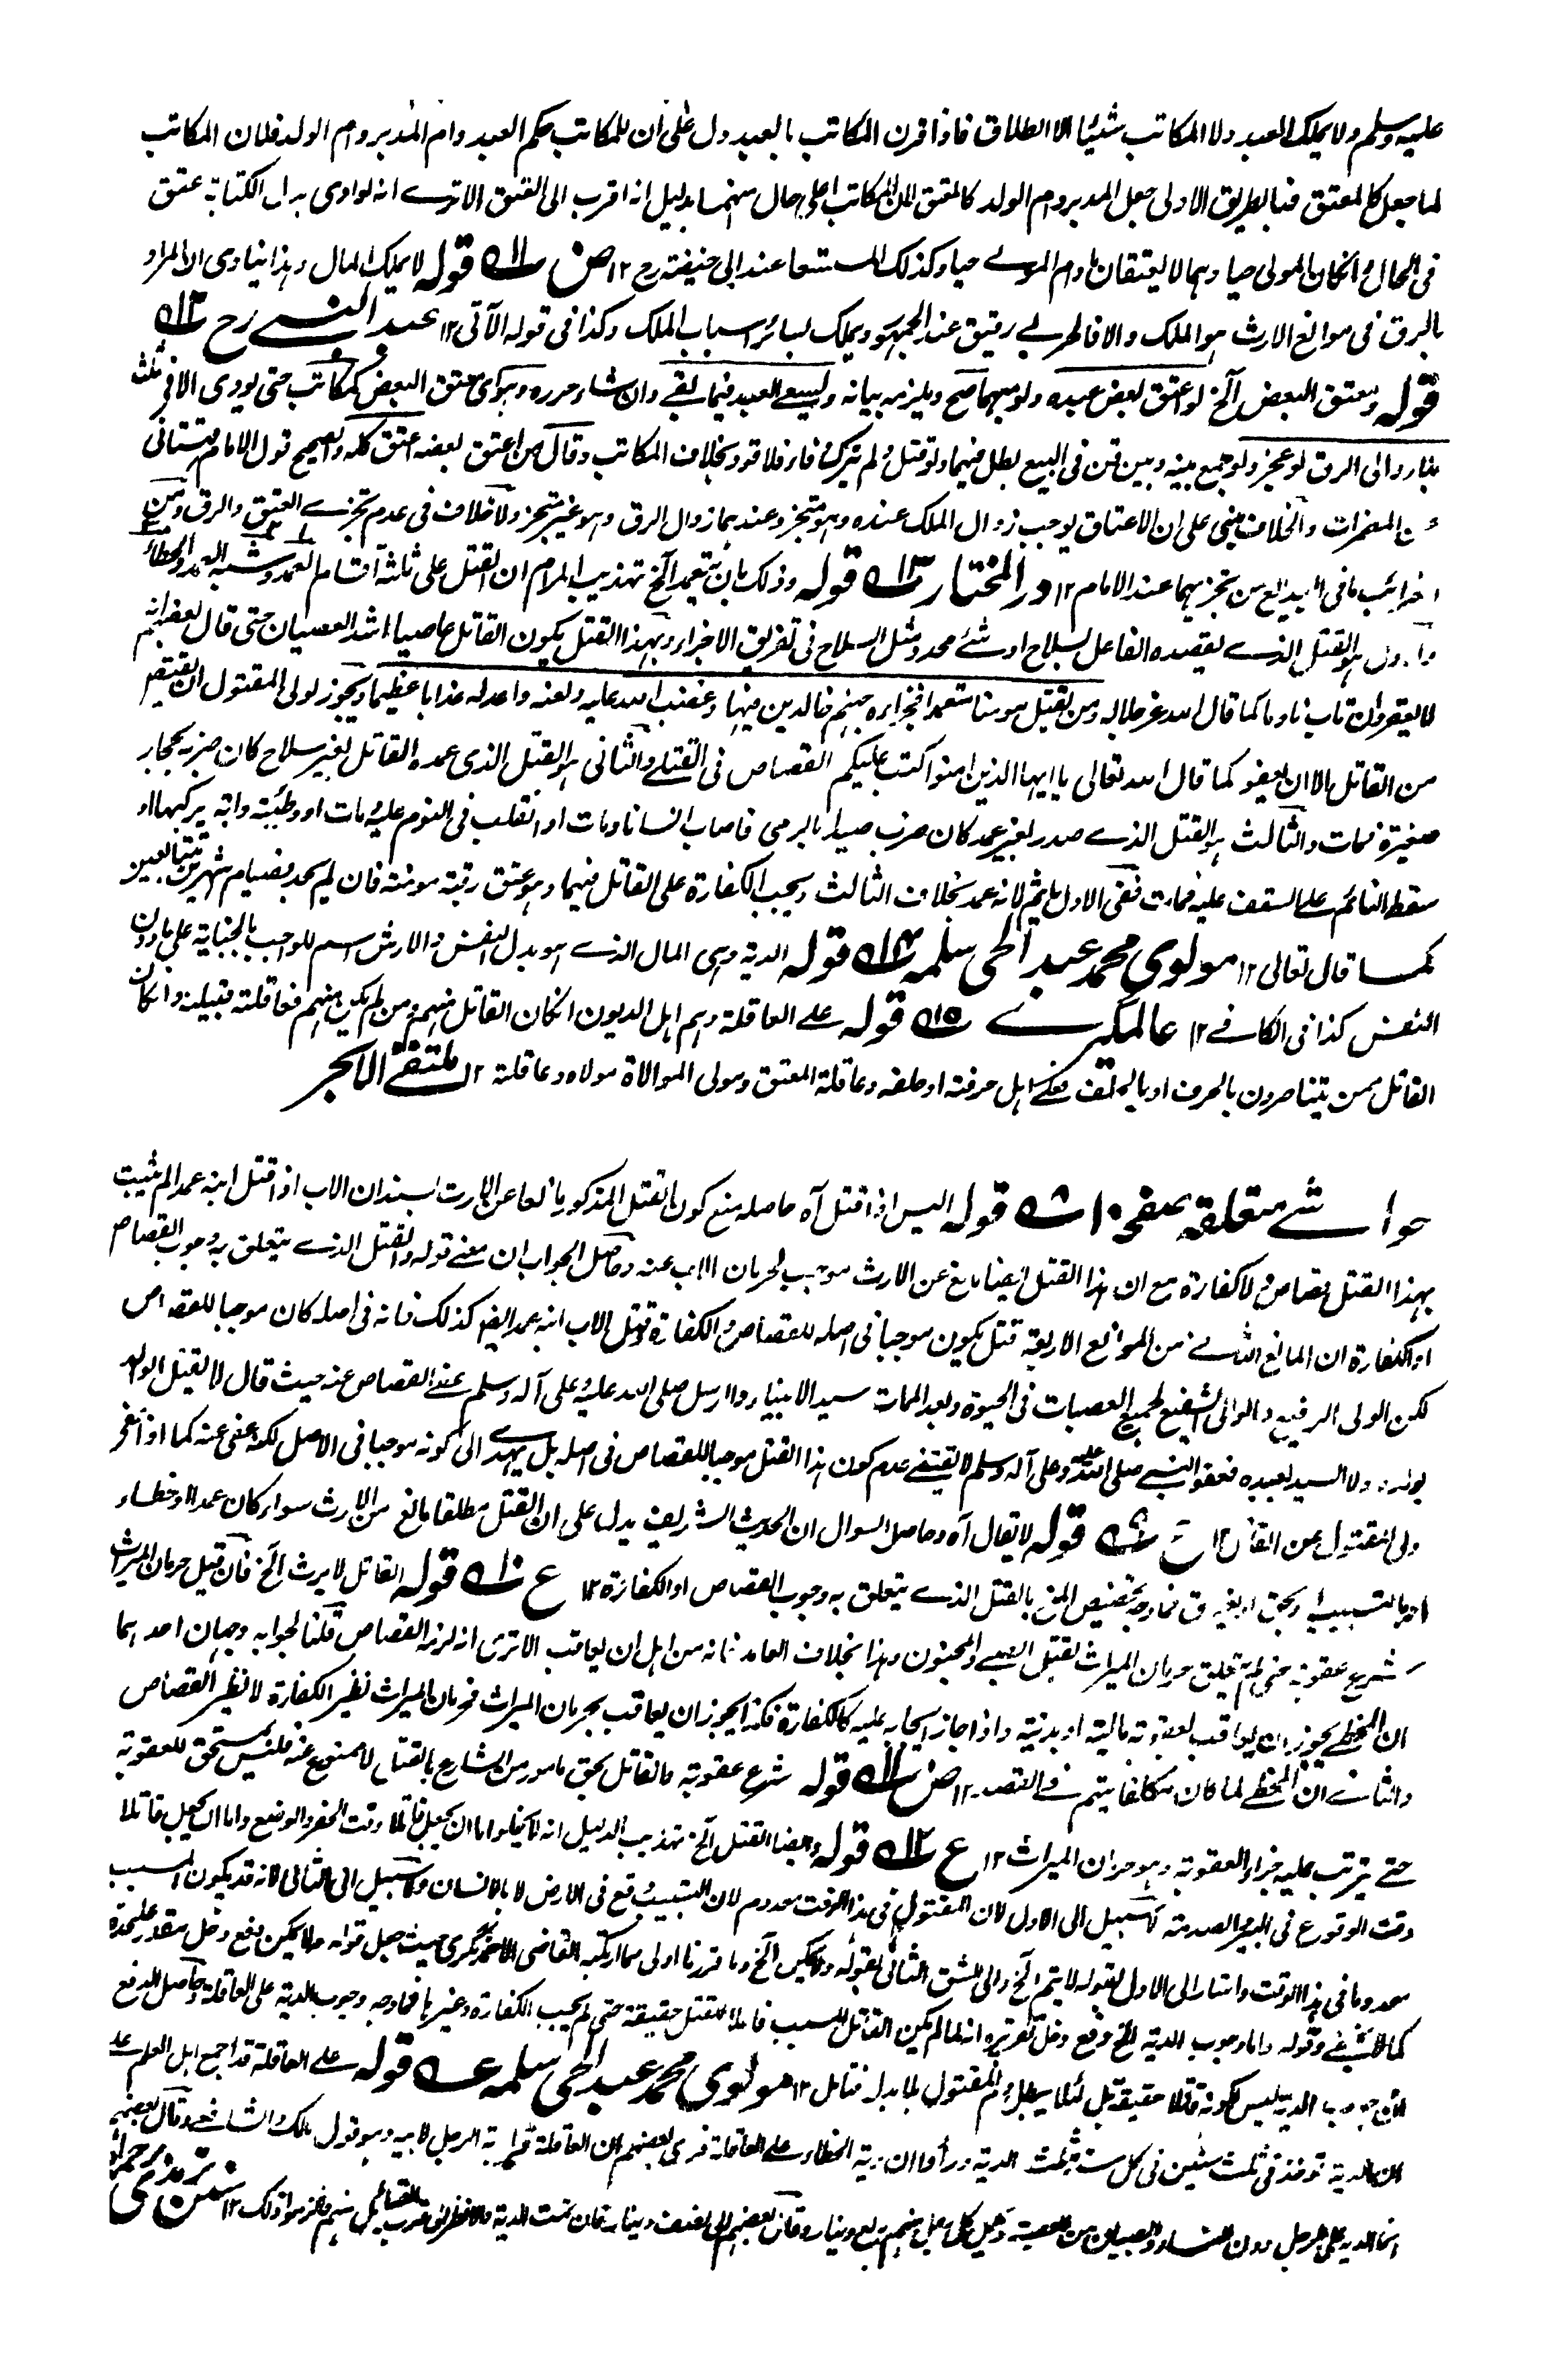 عليه وسلم ولا يملك العبد ولا المكاتب شيئا الا الطلاق فاذا قرن المكاتب بالعبد دل على ان للمكاتب حكم العبد وام المدبر وام الولد فلان المكاتب
لما جعل كالمعتق فبالطريق الاولى جعل المدبر وام الولد كالمعتق لان المكاتب اعلى حال منهما بدليل انه اقرب الى العتق الا ترى انه لو ادى بدل الكتابة عتق
فى الحال وان كان المولى حيا وهما لا يعتقان مادام المولى حيا وكذلك المستسعا عند ابى حنيفة رح ١٢ ص ١١ قوله لا يملك المال وهذا ينادى ان المراد
بالرق فى موانع الارث هو الملك والا فالحربى رقيق عند الجمهور ويملك بسائر اسباب الملك وكذا فى قوله الآتى ١٢ عبد النبى رح ١٢
قوله ومعتق البعض الخ لو اعتق بعض عبده ولو مبهما صح ويلزمه بيانه ويسعى العبد فيما بقى وان شاء حرره وهو اى معتق البعض كمكاتب حتى يودى الا فى ثلث
بلا رد الى الرق لو عجز ولو جمع بينه وبين قن فى البيع بطل فيهما ولو قتل ولم يترك وفاء فلا قود بخلاف المكاتب وقالا من اعتق بعضه عتق كله والصحيح قول الامام قهستانى
عن المضمرات والخلاف مبنى على ان الاعتاق يوجب زوال الملك عنده وهو متجز وعندهما زوال الرق وهو غير متجز ولا خلاف فى عدم تجزى العتق والرق ومن
الغرائب ما فى البدائع من تجزيهما عند الامام ١٢ در المختار ١٣ قوله وذلك بان يتعمد الخ تهذيب المرام ان القتل على ثلثة اقسام العمد وشبه العمد والخطاء
والاول هو القتل الذى يقصده الفاعل بسلاح او شئ محدد مثل السلاح فى تفريق الاجزاء وبهذا القتل يكون القاتل عاصيا اشد العصيان حتى قال بعضهم انه
لا يغفر وان تاب نادما كما قال الله عز جلاله ومن يقتل مومنا متعمدا فجزاءه جهنم خالدين فيها وغضب الله عليه ولعنه واعد له عذابا عظيما ويجوز لولى المقتول ان يقتص
من القاتل الا ان يعفو كما قال الله تعالى يا ايها الذين امنوا كتب عليكم القصاص فى القتلى والثانى هو القتل الذى عمده القاتل بغير سلاح كان ضربه بحجار
صغيرة فمات والثالث هو القتل الذى صدر بغير عمد كان ضرب صيدا بالرمى فاصاب انسانا ومات او انقلب فى النوم عليه ومات او وطيته دابته يركبها او
سقط النائم على السقف عليه فمات ففى الاول ياثم لانه عمد بخلاف الثالث ويجب الكفارة على القاتل فيهما وهو عتق رقبة مومنة فان لم يجد فصيام شهرين متتابعين
كما قال تعالى ١٢ مولوى محمد عبد الحى سلمه ١٤ قوله الدية وهى المال الذى هو بدل النفس والارش اسم للواجب بالجناية على مادون
النفس كذا فى الكافى ١٢ عالمگيرى ١٥ قوله على العاقلة وهم اهل الديوان ان كان القاتل منهم ومن لم يكن منهم فعاقلته قبيلته وان كان
القاتل ممن يتناصرون بالحرف او بالحلف فعلى اهل حرفته او حلفه وعاقلة المعتق ومولى الموالاة مولاه وعاقلته ١٢ ملتقى الابحر
حواشى متعلقه صفحه ١٠ قوله اليس اذا قتل آه حاصله منع كون القتل المذكور مانعا عن الارث بسند ان الاب اذا قتل ابنه عمدا لم يثبت
بهذا القتل قصاص ولا كفارة مع ان هذا القتل ايضا مانع عن الارث موجب لحرمان الاب عنه وحاصل الجواب ان معنى قوله والقتل الذى يتعلق به وجوب القصاص
او الكفارة ان المانع الثانى من الموانع الاربعة قتل يكون موجبا فى اصله للقصاص والكفارة وقتل الاب ابنه عمدا ايضا كذلك فانه فى اصله كان موجبا للقصاص
لكن الولى الرفيع والوالى الشفيع لجميع العصبات فى الحيوة وبعد الممات سيد الانبياء والرسل صلى الله عليه وعلى آله وسلم عفى القصاص عنه حيث قال لا يقتل الوالد
بولده ولا السيد بعبده فعفو النبى صلى الله عليه وعلى آله وسلم لا يقتضى عدم كون هذا القتل موجبا للقصاص فى اصله بل يهدى الى كونه موجبا فى الاصل لكنه عفى عنه كما اذا عفى
ولى المقتول عن القاتل ١٢ قوله لا يقال آه وحاصل السوال ان الحديث الشريف يدل على ان القتل مطلقا مانع من الارث سواء كان عمدا او خطاء
او بالتسبيب او بحق او بغير حق فما وجه تخصيص المنع بالقتل الذى يتعلق به وجوب القصاص او الكفارة ١٢ ع ١٠ قوله القاتل لا يرث الخ فان قيل حرمان الميراث
شرع عقوبة حتى لم يتعلق حرمان الميراث بقتل الصبى والمجنون وهذا بخلاف العامد فانه من اهل ان يعاقب الا ترى انه لزمه القصاص قلنا لجوابه وجهان احدهما
ان المخطى يجوز ان يعاقب بعقوبة مالية او بدنية واذا جاز ايجابه عليه كالكفارة فكذا يجوز ان يعاقب بحرمان الميراث فحرمان الميراث نظير الكفارة لا نظير القصاص
والثانى ان المخطى لما كان مكلفا يتهم فى القصد ١٢ ص ١١ قوله شرع عقوبة فالقاتل بحق مامور من الشارع بالقتل لا ممنوع عنه فليس بمستحق للعقوبة
حتى يترتب عليه جزاء العقوبة وهو حرمان الميراث ١٢ ع ١٢ قوله وايضا القتل الخ تهذيب الدليل انه لا يخلو اما ان يجعل قاتلا وقت الحفر والوضع واما ان يجعل قاتلا
وقت الوقوع فى البير والصدمة لا سبيل الى الاول لان المقتول فى هذا الوقت معدوم لان التسبيب وقع فى الارض لا بالانسان ولا سبيل الى الثانى لانه قد يكون المسبب
معدوما فى هذا الوقت واشار الى الاول بقوله لا يتم الخ والى الشق الثانى بقوله ولا يمكن الخ وما قررنا اولى مما ارتكبه القاضى الاحمد نگرى حيث جعل قوله ولا يمكن دفع دخل مقدر علحدة
كما لا يخفى وقوله واما وجوب الدية الخ دفع دخل تقريره انه لما لم يكن القاتل المسبب فاعلا للقتل حقيقة حتى لم يجب الكفارة وغيرها فما وجه وجوب الدية على العاقلة وحاصل الدفع
ان وجوب الدية ليس لكونه قاتلا حقيقة بل لئلا يبطل دم المقتول بلا بدل فتامل ١٢ مولوى محمد عبد الحى سلمه قوله على العاقلة قد اجمع اهل العلم على
ان الدية توخذ فى ثلث سنين فى كل سنة ثلث الدية وراوا ان دية الخطاء على العاقلة فراى بعضهم ان العاقلة قرابة الرجل لابيه وهو قول مالك والشافعى وقال بعضهم
انما الدية على الرجل دون النساء والصبيان من العصبة وتحمل كل رجل منهم ربع دينار وقال بعضهم الى نصف دينار فان تمت الدية والا نظر الى اقرب القبائل منهم فالزموا ذلك ١٢ سنن ترمذى رحمه الله